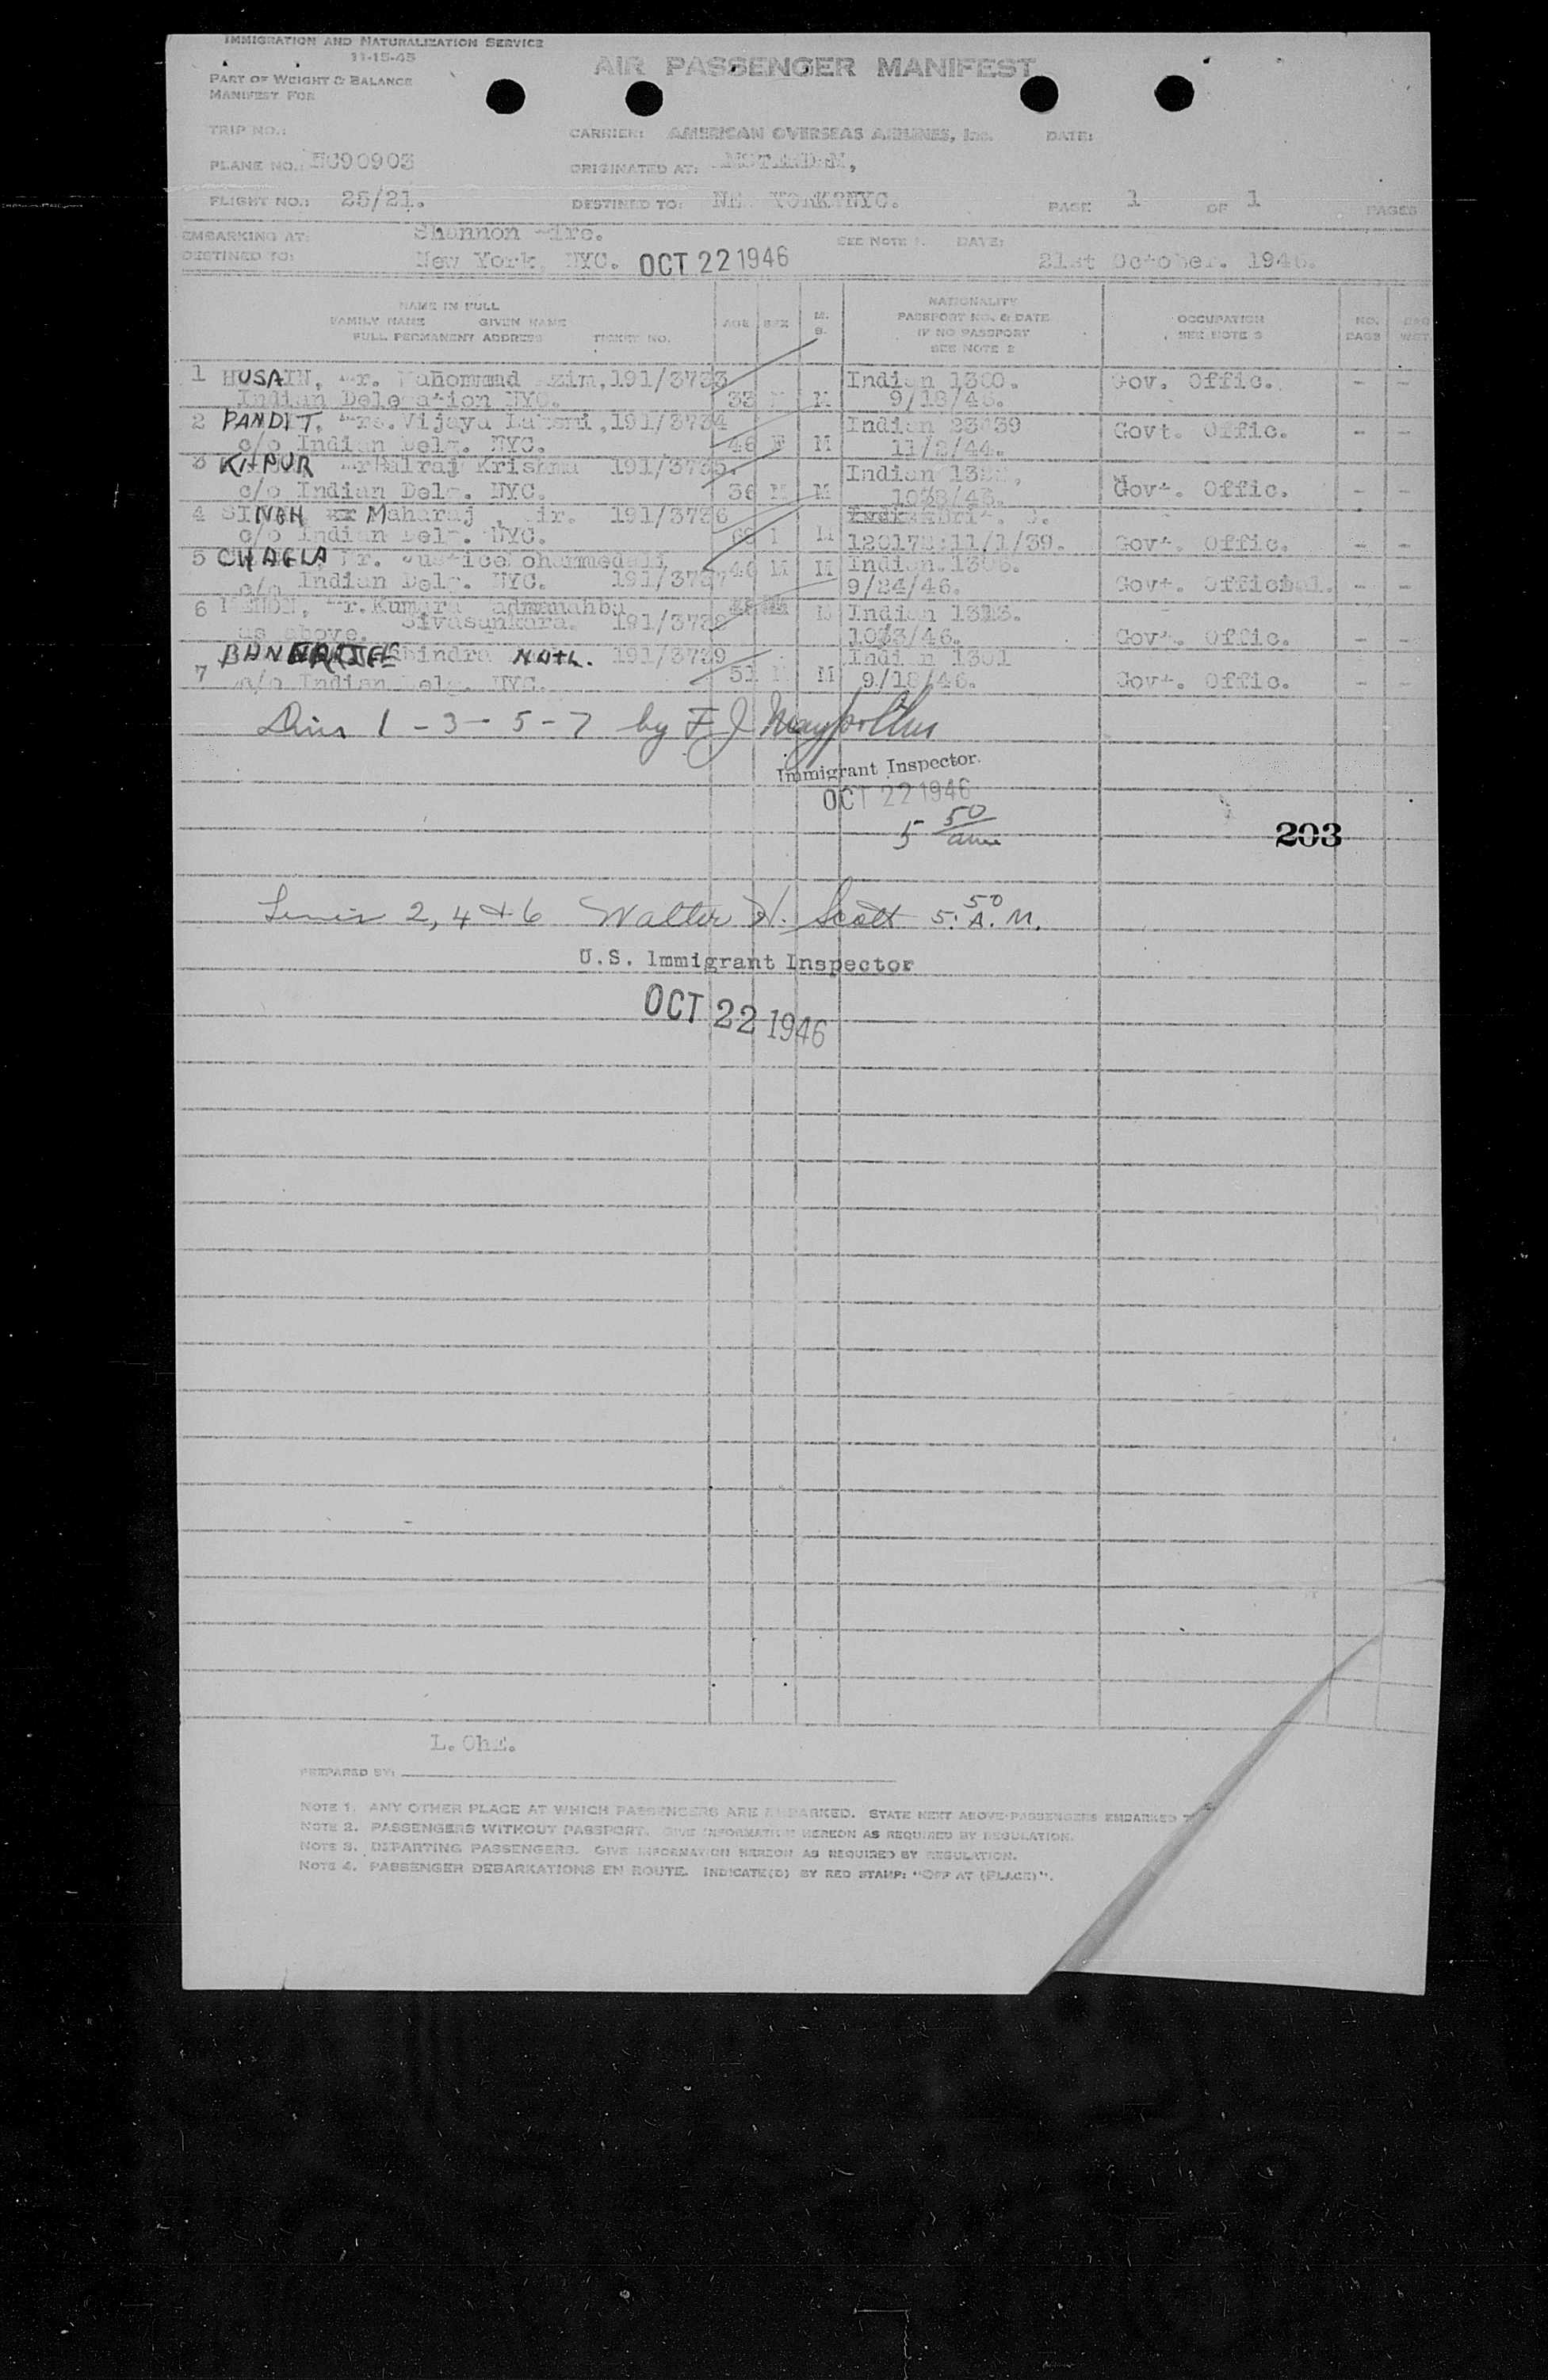 IMMIGRATION AND NATURALIZATION SERVICE
11-15-45
AIR PASSENGER MANIFEST
PART OF WEIGHT & BALANCE
MANIFEST FOR
TRIP NO.: CARRIER: AMERICAN OVERSEAS AIRLINES, Inc. DATE:
PLANE NO.: NC90903 ORIGINATED AT:
FLIGHT NO.: 25/21. DESTINED TO: YORK NYC. PAGE 1 OF 1 PAGES
EMBARKING AT: Shannon SEE NOTE 1. DATE:
DESTINED TO: New York, NYC. OCT 22 1946 21st October. 1946.
NAME IN FULL
FAMILY NAME GIVEN NAME
FULL PERMANENT ADDRESS TICKET NO.
AGE SEX M. S.
NATIONALITY
PASSPORT NO. & DATE
IF NO PASSPORT
SEE NOTE 2
OCCUPATION
SEE NOTE 3
NO. BAGS
1 HUSAIN, Mr. 191/3733 Indian 1300. Gov. Offic. - -
Indian Delegation NYC. 33 M M 9/18/46.
2 PANDIT, Mrs. Vijaya 191/3734 Indian Govt. Offic. - -
c/o Indian Delg. NYC. 46 F M 11/2/44.
3 KAPUR Mr Balraj Krishna 191/3735. Indian
c/o Indian Delg. NYC. 36 M M Govt. Offic. - -
4 SINGH Maharaj Sir. 191/3736
c/o Indian Delg. NYC. M 11/1/39. Govt. Offic. - -
5 CHAGLA Mr. Justice Mohammedali, 46 M M Indian.
c/o Indian Delg. NYC. 191/3737 9/24/46. Govt. Official. - -
6 MENON, Mr. Kumara M Indian
as above. Sivasankara. 191/3738 Govt. Offic. - -
BANNERJEE Rabindra NATH. 191/3739 Indian 1301
7 c/o Indian Delg. NYC. 51 M M 9/18/46. Govt. Offic. - -
1 - 3 - 5 - 7 by F J
Immigrant Inspector.
OCT 22 1946
5 50 am
203
2, 4 & 6 Walter H. Scott 5:50 A.M.
U.S. Immigrant Inspector
OCT 22 1946
PREPARED BY:
NOTE 1. ANY OTHER PLACE AT WHICH PASSENGERS ARE EMBARKED. STATE NEXT ABOVE PASSENGERS EMBARKED
NOTE 2. PASSENGERS WITHOUT PASSPORT. GIVE INFORMATION HEREON AS REQUIRED BY REGULATION.
NOTE 3. DEPARTING PASSENGERS. GIVE INFORMATION HEREON AS REQUIRED BY REGULATION.
NOTE 4. PASSENGER DEBARKATIONS EN ROUTE. INDICATE(D) BY RED STAMP: "OFF AT (PLACE)".